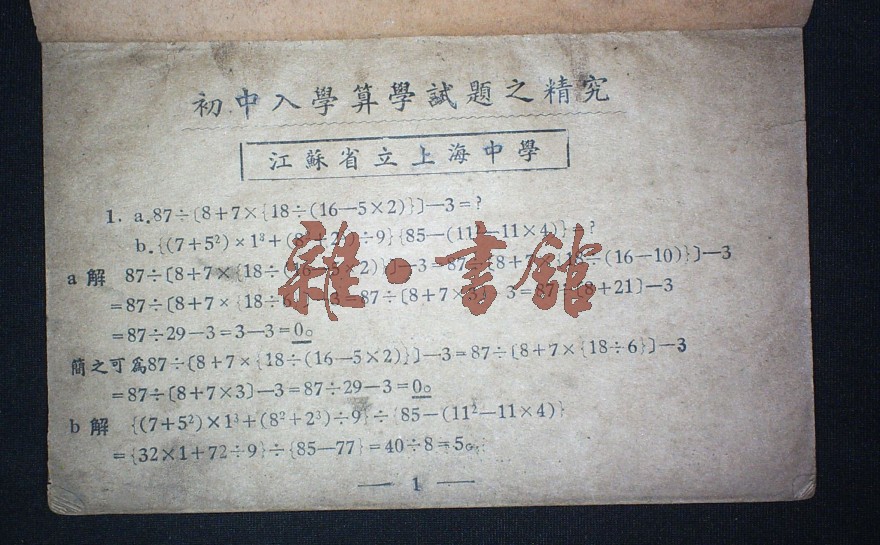 初中入學算學試題之精究
江蘇省立上海中學
1. a. 87÷〔8+7×{18÷(16—5×2)}〕—3=?
b. {(7+5²)×1³+(8²+2³)÷9}{85—(11²—11×4)}=?
a 解 87÷〔8+7×{18÷(16—5×2)}〕—3=87÷〔8+7×{18÷(16—10)}〕—3
=87÷〔8+7×{18÷6}〕—3=87÷〔8+7×3〕—3=87÷〔8+21〕—3
=87÷29—3=3—3=0。
簡之可爲87÷〔8+7×{18÷(16—5×2)}〕—3=87÷〔8+7×{18÷6}〕—3
=87÷〔8+7×3〕—3=87÷29—3=0。
b 解 {(7+5²)×1³+(8²+2³)÷9}÷{85—(11²—11×4)}
={32×1+72÷9}÷{85—77}=40÷8=5。
— 1 —
雜·書館